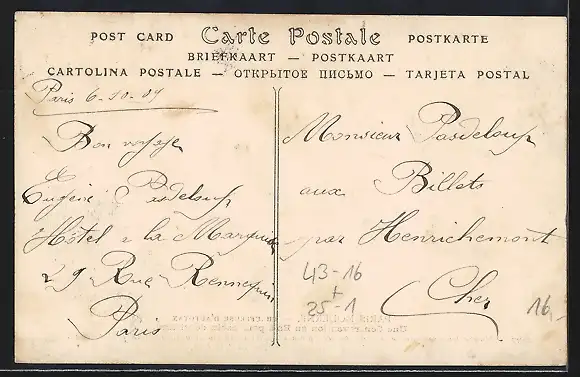 POST CARD Carte Postale POSTKARTE
BRIEFKAART — POSTKAART
CARTOLINA POSTALE — ОТКРЫТОЕ ПИСЬМО — TARJETA POSTAL
Paris 6-10-07
Bon voyage
Eugène Pasdeloup
Hôtel de la Marquise
29 Rue Rennequin
Paris
Monsieur Pasdeloup
aux Billets
par Henrichemont
Cher
43-16
+
25-1
16,-